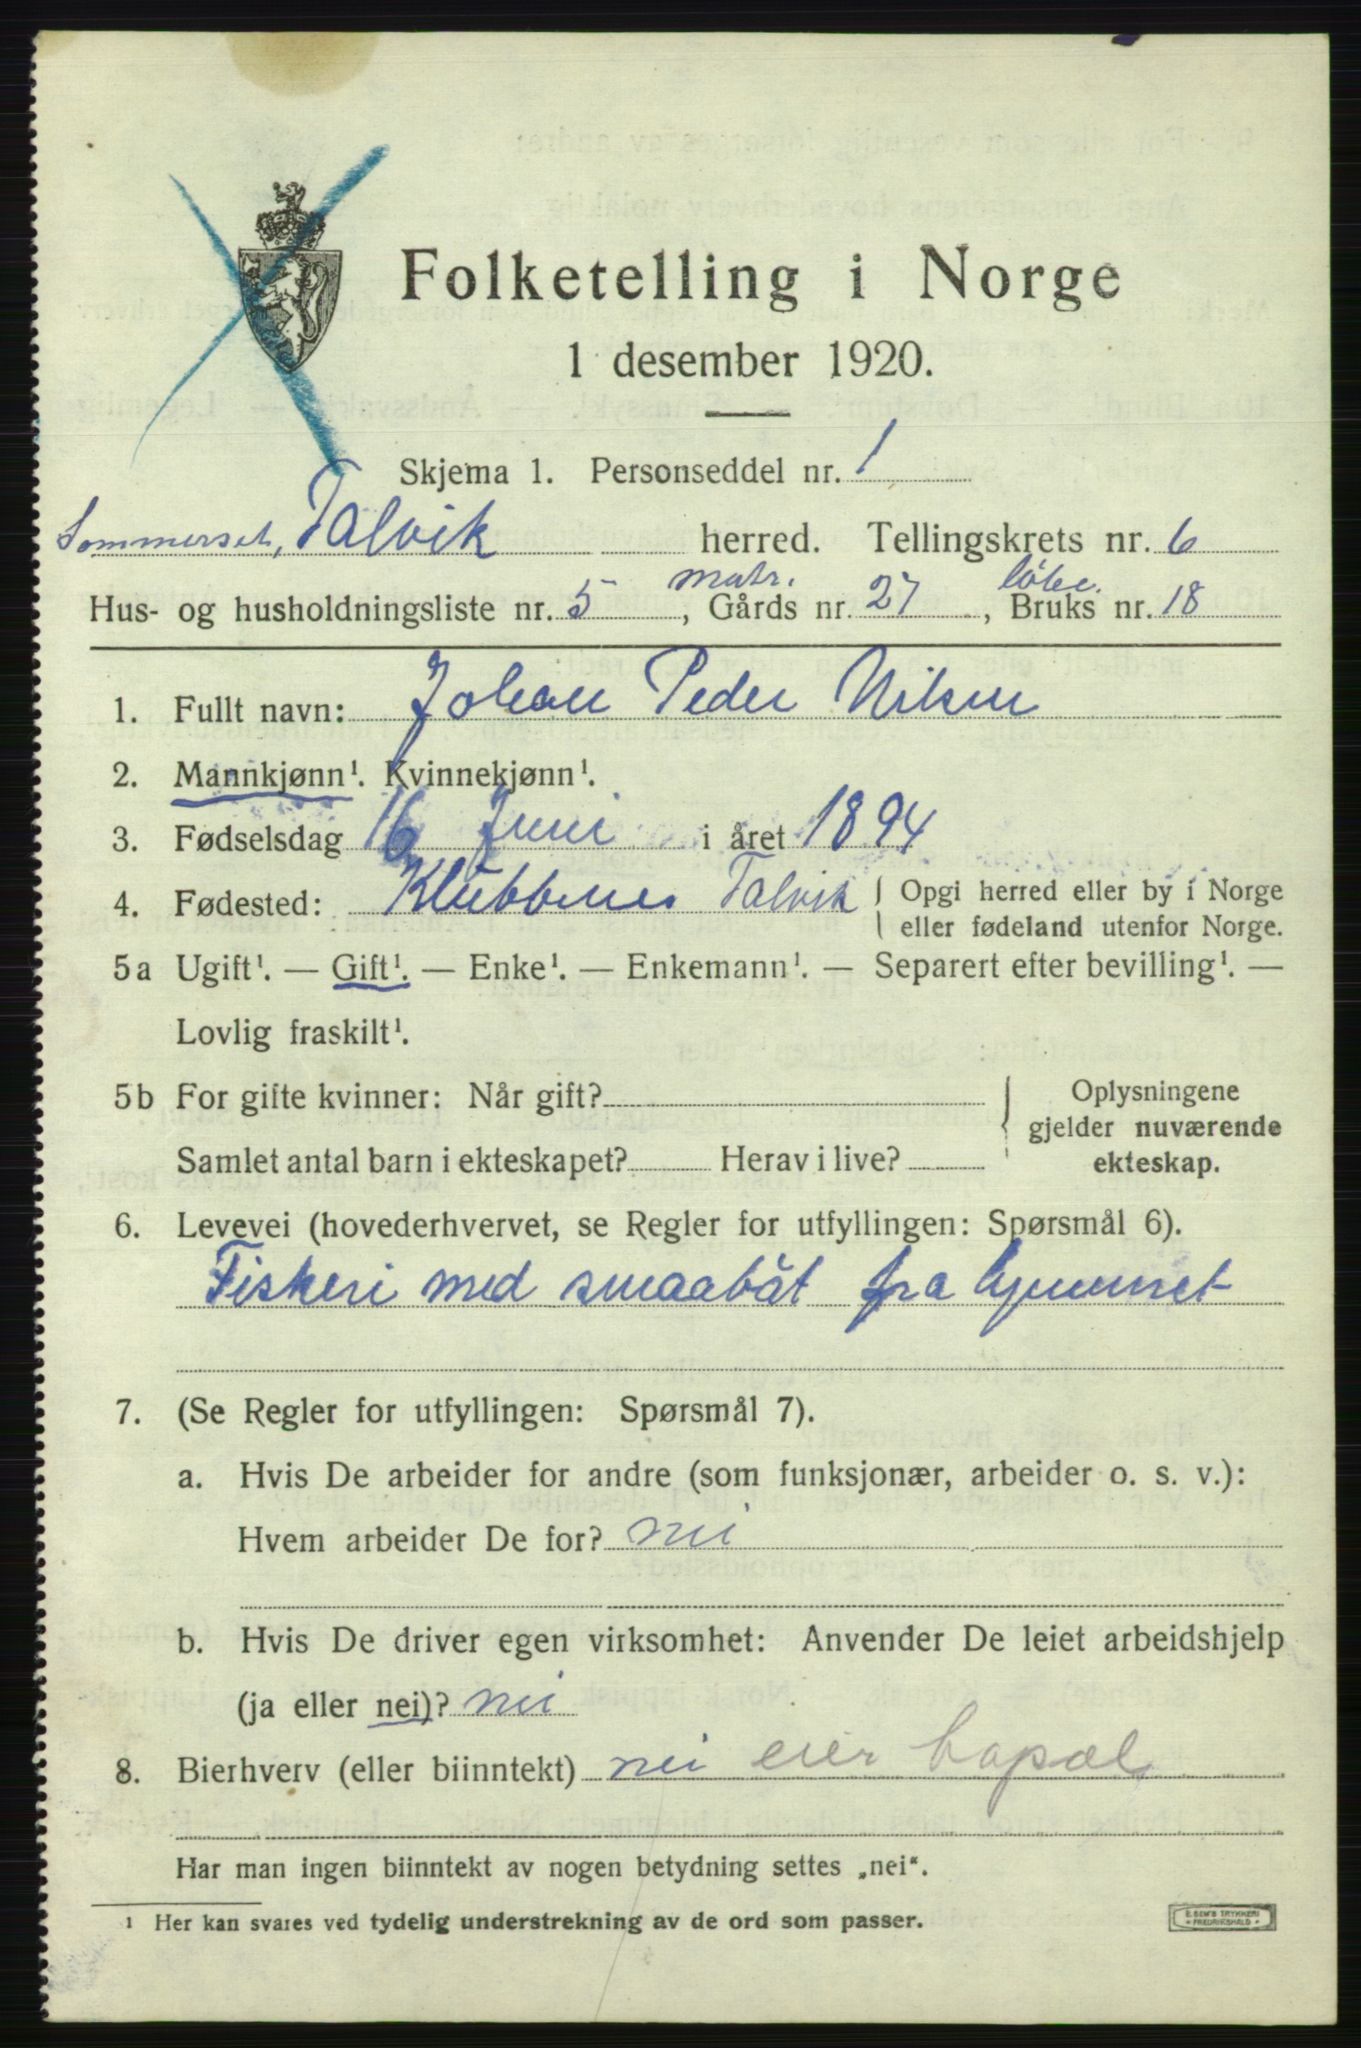 Folketelling i Norge
1 desember 1920.
Skjema 1. Personseddel nr. 1
Sommerset, Talvik herred. Tellingskrets nr. 6
matr. løbe.
Hus- og husholdningsliste nr. 5, Gårds nr. 27, Bruks nr. 18
1. Fullt navn: Johan Peder Nilsen
2. Mannkjønn¹. Kvinnekjønn¹.
3. Fødselsdag 16 Juni i året 1894
4. Fødested: Klubbnes Talvik { Opgi herred eller by i Norge
eller fødeland utenfor Norge.
5a Ugift¹. — Gift¹. — Enke¹. — Enkemann¹. — Separert efter bevilling¹. —
Lovlig fraskilt¹.
5b For gifte kvinner: Når gift? { Oplysningene
gjelder nuværende
Samlet antal barn i ekteskapet? Herav i live? ekteskap.
6. Levevei (hovederhvervet, se Regler for utfyllingen: Spørsmål 6).
Fiskeri med smaabåt fra hjemmet
7. (Se Regler for utfyllingen: Spørsmål 7).
a. Hvis De arbeider for andre (som funksjonær, arbeider o. s. v.):
Hvem arbeider De for? nei
b. Hvis De driver egen virksomhet: Anvender De leiet arbeidshjelp
(ja eller nei)? nei
8. Bierhverv (eller biinntekt) nei eier
Har man ingen biinntekt av nogen betydning settes „nei“.
¹ Her kan svares ved tydelig understrekning av de ord som passer.
E. SEM'S TRYKKERI
FREDRIKSHALD